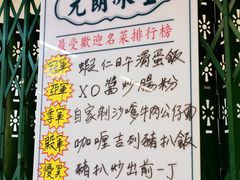 元朗冰室
最受歡迎名菜排行榜
冠軍 蝦仁日牛滑蛋飯
亞軍 XO醬炒腸粉
季軍 自家制沙嗲牛肉公仔面
殿軍 咖喱吉列豬扒飯
優異 豬扒炒出前一丁